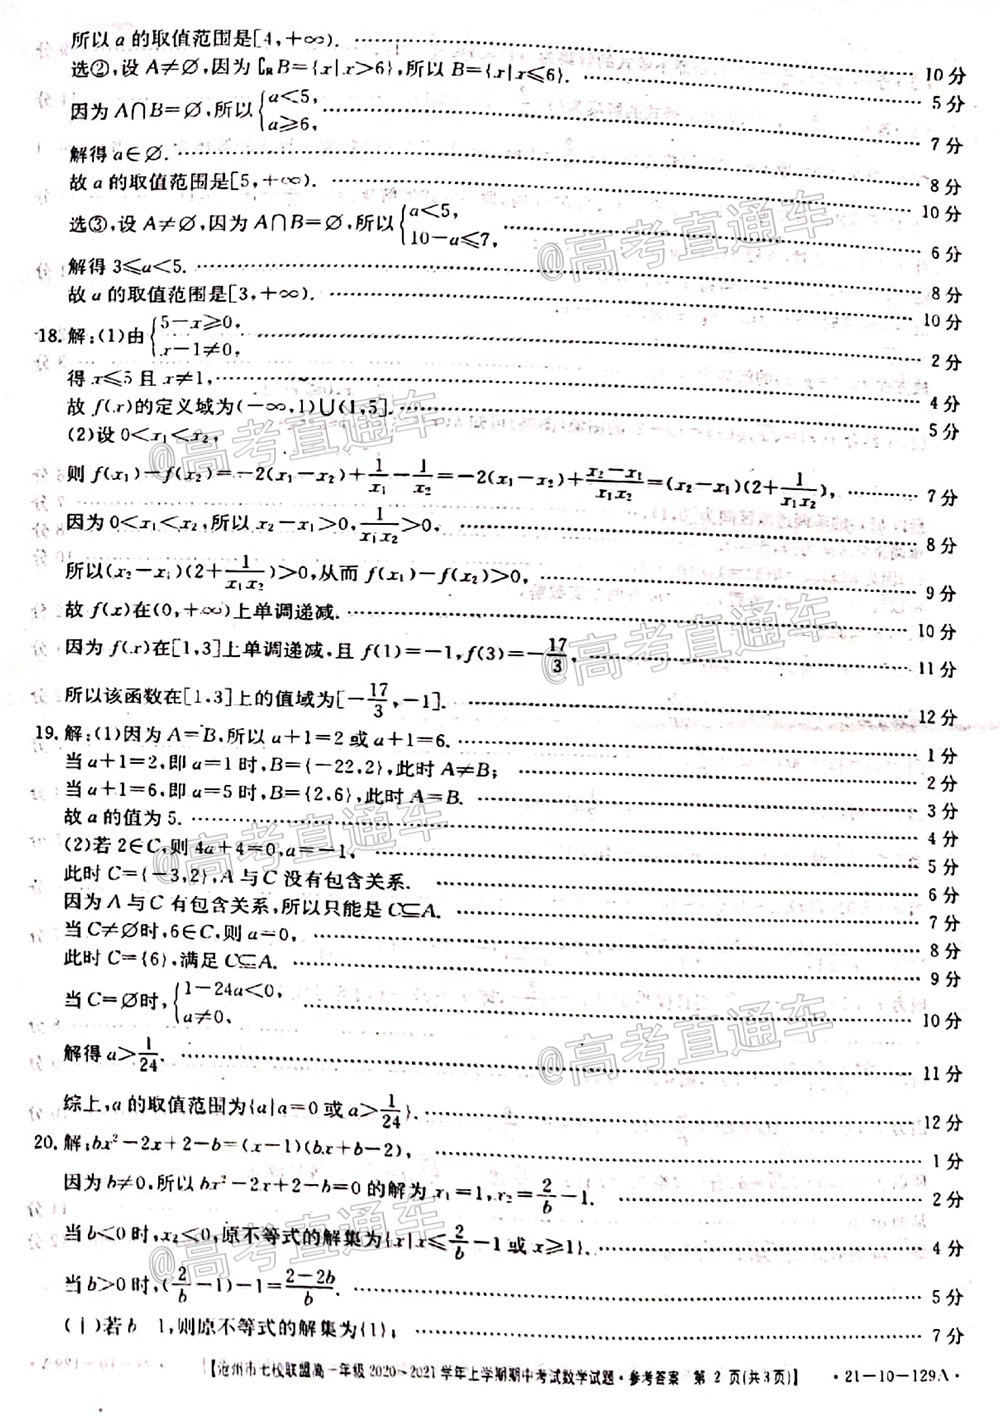 所以a的取值范围是[4,+∞). 10分
选②,设A≠∅,因为∁RB={x|x>6},所以B={x|x≤6}. 5分
因为A∩B=∅,所以{a<5, a≥6, 7分
解得a∈∅. 8分
故a的取值范围是[5,+∞). 10分
选③,设A≠∅,因为A∩B=∅,所以{a<5, 10-a≤7, 6分
解得3≤a<5. 8分
故a的取值范围是[3,+∞). 10分
18.解:(1)由{5-x≥0, x-1≠0, 2分
得x≤5且x≠1, 4分
故f(x)的定义域为(-∞,1)∪(1,5]. 5分
(2)设0<x₁<x₂,
则f(x₁)-f(x₂)=-2(x₁-x₂)+1/x₁-1/x₂=-2(x₁-x₂)+(x₂-x₁)/(x₁x₂)=(x₂-x₁)(2+1/(x₁x₂)), 7分
因为0<x₁<x₂,所以x₂-x₁>0,1/(x₁x₂)>0, 8分
所以(x₂-x₁)(2+1/(x₁x₂))>0,从而f(x₁)-f(x₂)>0, 9分
故f(x)在(0,+∞)上单调递减. 10分
因为f(x)在[1,3]上单调递减,且f(1)=-1,f(3)=-17/3, 11分
所以该函数在[1,3]上的值域为[-17/3,-1]. 12分
19.解:(1)因为A=B,所以a+1=2或a+1=6. 1分
当a+1=2,即a=1时,B={-22,2},此时A≠B; 2分
当a+1=6,即a=5时,B={2,6},此时A=B. 3分
故a的值为5. 4分
(2)若2∈C,则4a+4=0,a=-1, 5分
此时C={-3,2},A与C没有包含关系. 6分
因为A与C有包含关系,所以只能是C⊆A. 7分
当C≠∅时,6∈C,则a=0, 8分
此时C={6},满足C⊆A. 9分
当C=∅时,{1-24a<0, a≠0, 10分
解得a>1/24. 11分
综上,a的取值范围为{a|a=0或a>1/24}. 12分
20.解:bx²-2x+2-b=(x-1)(bx+b-2), 1分
因为b≠0,所以bx²-2x+2-b=0的解为x₁=1,x₂=2/b-1. 2分
当b<0时,x₂<0,原不等式的解集为{x|x≤2/b-1或x≥1}. 4分
当b>0时,(2/b-1)-1=(2-2b)/b. 5分
(ⅰ)若b 1,则原不等式的解集为{1}; 7分
【沧州市七校联盟高一年级2020~2021学年上学期期中考试数学试题·参考答案 第2页(共3页)】 ·21-10-129A·
@高考直通车
@高考直通车
@高考直通车
@高考直通车
@高考直通车
@高考直通车